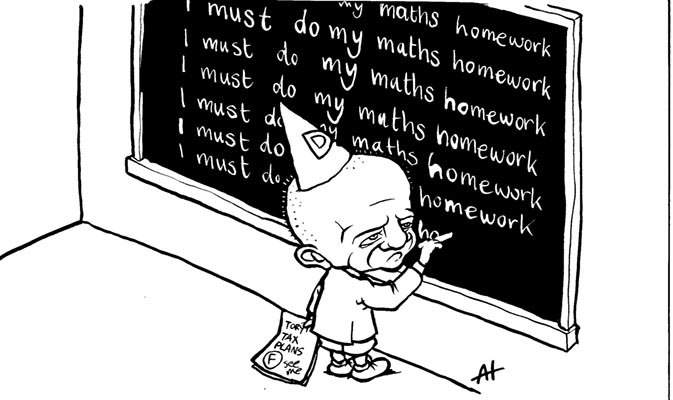 my maths homework
I must do my maths homework
I must do my maths homework
I must do my maths homework
I must do my maths homework
I must do homework
I must do. ho
D
TORY
TAX
PLANS
F see
me